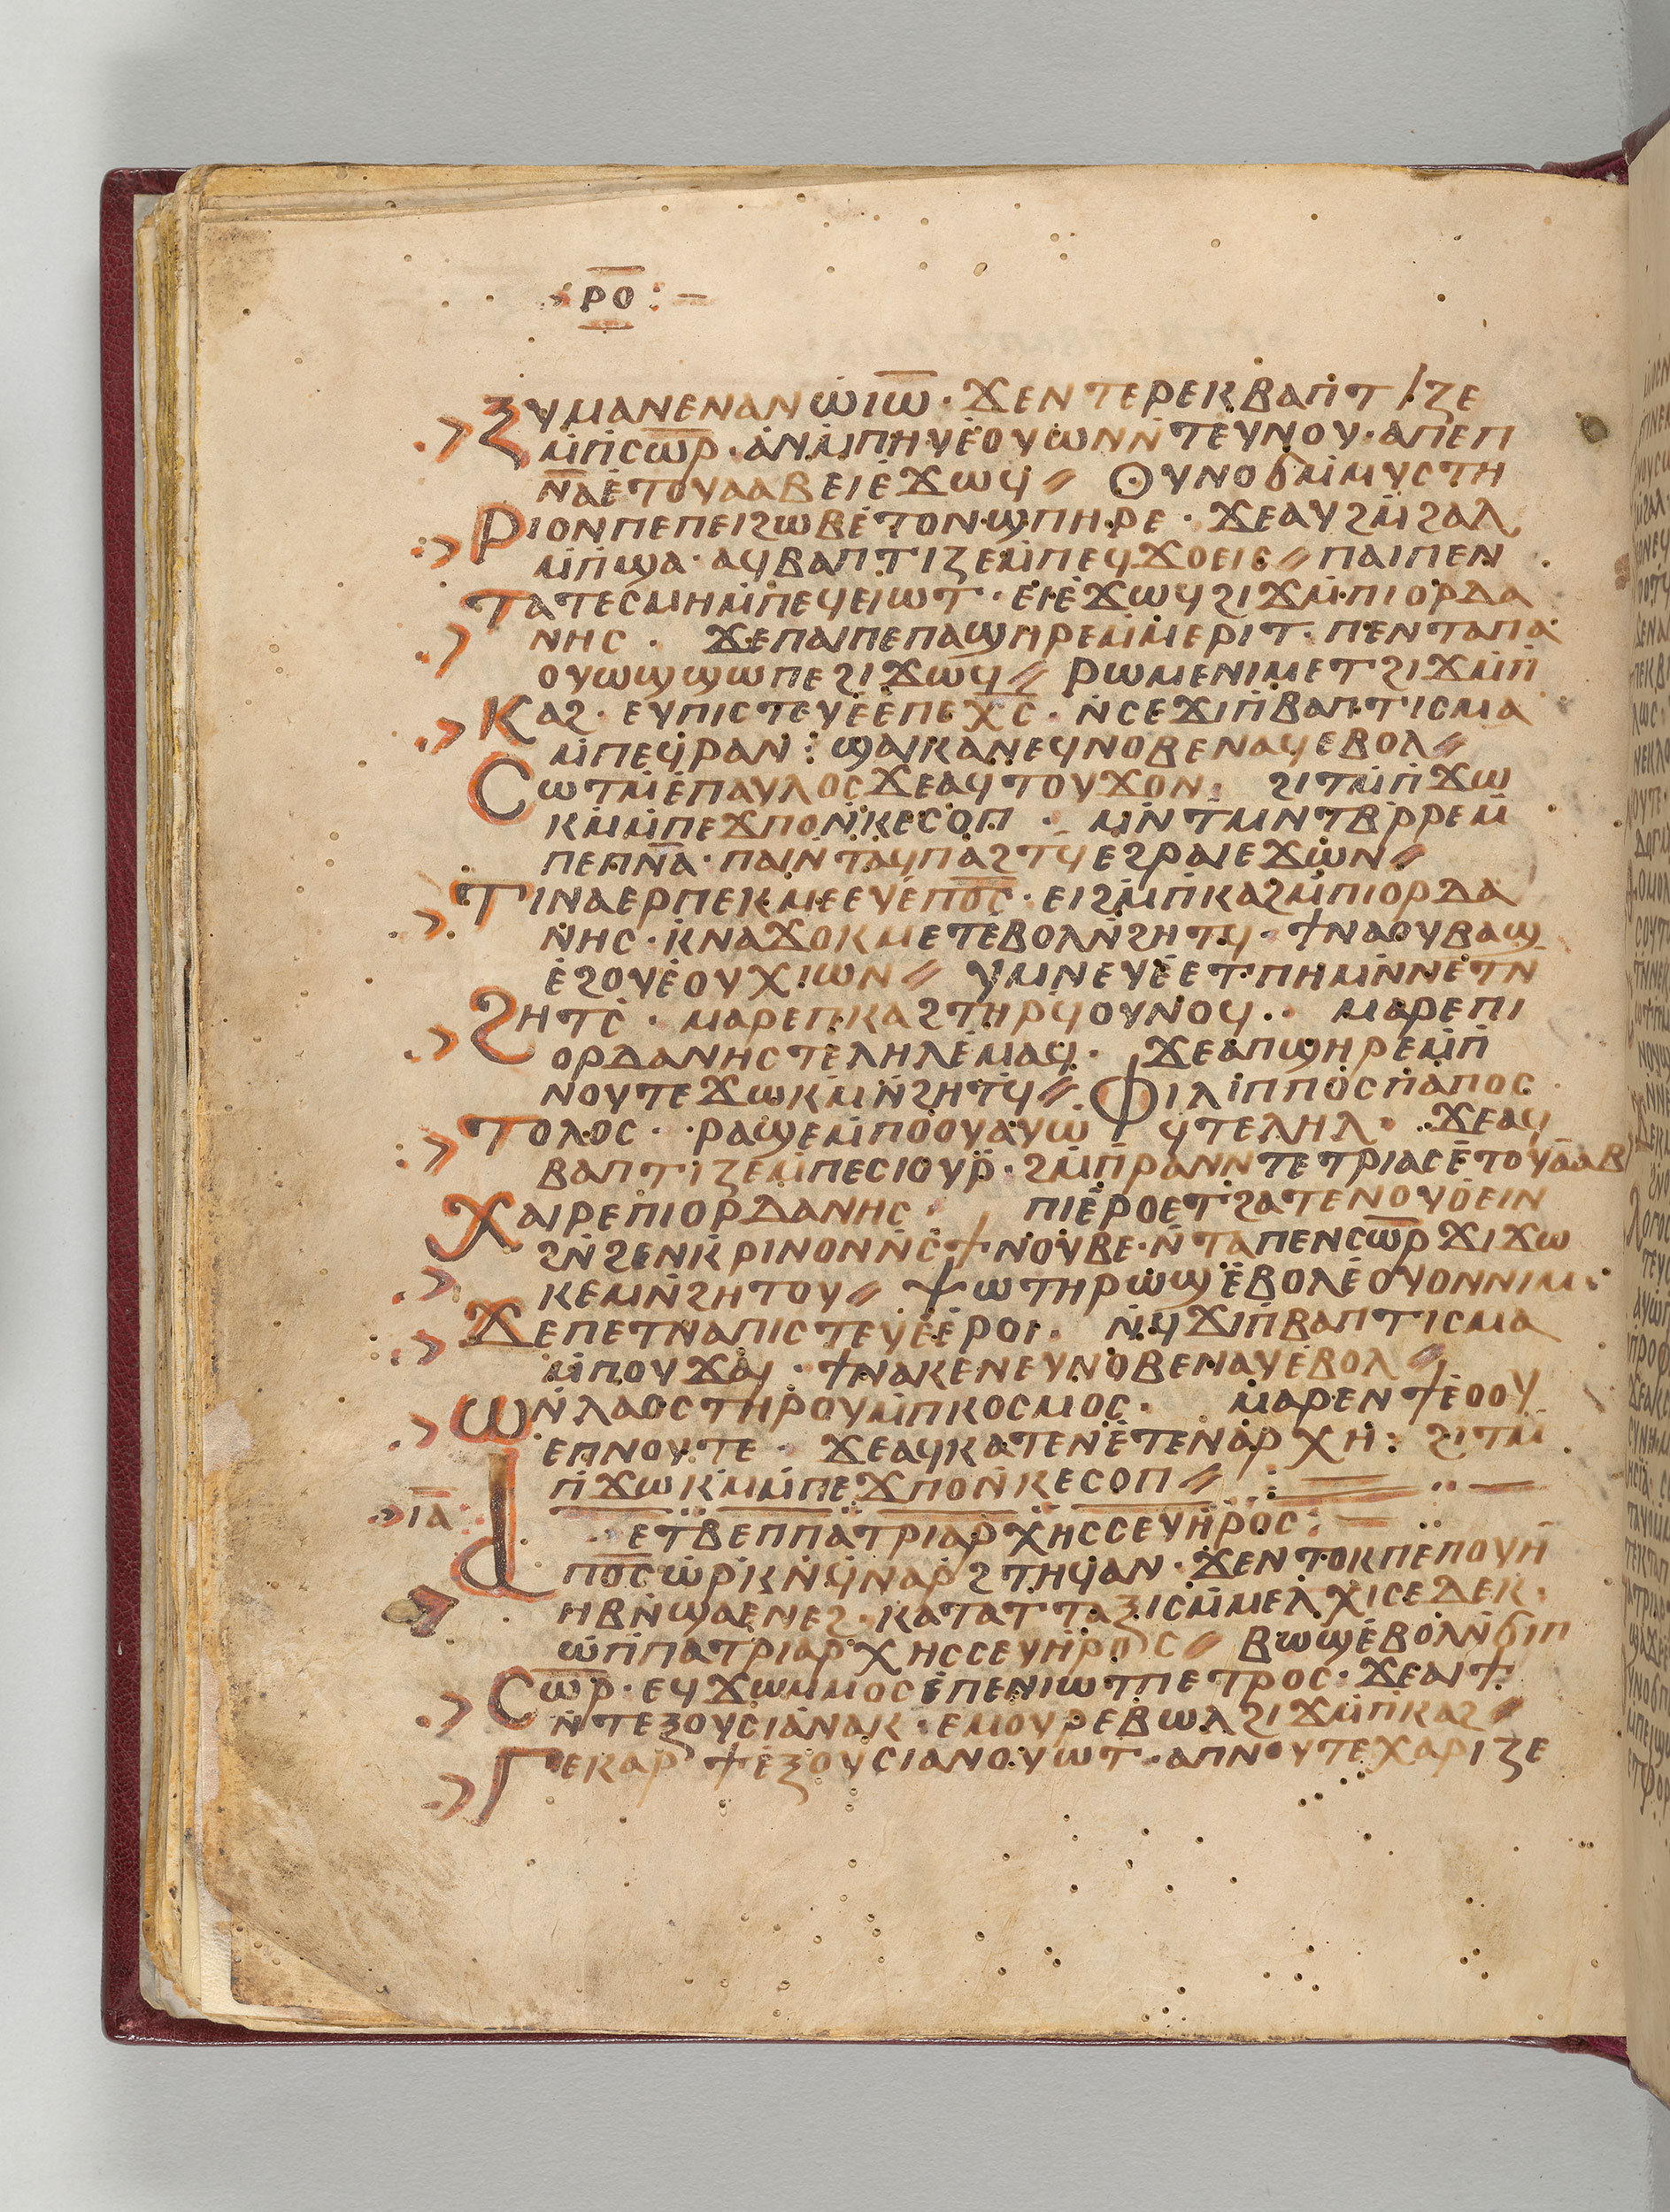 ⲣⲟ
ⲝⲩⲙⲁⲛⲉⲛⲁⲛⲱⲓⲱ · ϫⲉⲛⲧⲉⲣⲉⲕⲃⲁⲡⲧⲓⲍⲉ
ⲙⲡⲥⲱⲣ · ⲁⲛⲙⲡⲏⲩⲉⲟⲩⲱⲛⲛⲧⲉⲩⲛⲟⲩ · ⲁⲡⲉⲡ
ⲛⲁⲉⲧⲟⲩⲁⲁⲃⲉⲓⲉϫⲱϥ ⲟⲩⲛⲟϭⲙⲙⲩⲥⲧⲏ
ⲣⲓⲟⲛⲡⲉⲡⲉⲓϩⲱⲃⲉⲧⲟⲛϣⲡⲏⲣⲉ · ϫⲉⲁⲩϩⲙϩⲁⲗ
ⲙⲡϣⲁ · ⲁϥⲃⲁⲡⲧⲓⲍⲉⲙⲡⲉϥϫⲟⲉⲓⲥ ⲡⲁⲓⲡⲉⲛ
ⲧⲁⲧⲉⲥⲙⲏⲙⲡⲉϥⲉⲓⲱⲧ · ⲉⲓⲉϫⲱϥϩⲓϫⲙⲡⲓⲟⲣⲇⲁ
ⲛⲏⲥ · ϫⲉⲡⲁⲓⲡⲉⲡⲁϣⲏⲣⲉⲙⲙⲉⲣⲓⲧ · ⲡⲉⲛⲧⲁⲡⲁ
ⲟⲩⲱϣϣⲱⲡⲉϩⲓϫⲱϥ ⲣⲱⲙⲉⲛⲓⲙⲉⲧϩⲓϫⲙⲡ
ⲕⲁϩ · ⲉⲩⲡⲓⲥⲧⲉⲩⲉⲉⲡⲉⲭⲥ · ⲛⲥⲉϫⲓⲡⲃⲁⲡⲧⲓⲥⲙⲁ
ⲙⲡⲉϥⲣⲁⲛ : ϣⲁⲓⲕⲁⲛⲉϥⲛⲟⲃⲉⲛⲁϥⲉⲃⲟⲗ
ⲥⲱⲧⲙⲉⲡⲁⲩⲗⲟⲥϫⲉⲁϥⲧⲟⲩϫⲟⲛ · ϩⲓⲧⲙⲡϫⲱ
ⲕⲙⲙⲡⲉϫⲡⲟⲛⲕⲉⲥⲟⲡ · ⲙⲛⲧⲙⲛⲧⲃⲣⲣⲉⲙ
ⲡⲉⲡⲛⲁ · ⲡⲁⲓⲛⲧⲁϥⲡⲁϩⲧϥⲉϩⲣⲁⲓⲉϫⲱⲛ
ⲧⲓⲛⲁⲉⲣⲡⲉⲕⲙⲉⲉⲩⲉⲡⲟⲥ · ⲉⲓϩⲙⲡⲕⲁϩⲙⲡⲓⲟⲣⲇⲁ
ⲛⲏⲥ · ⲕⲛⲁϫⲟⲕⲙⲉⲧⲉⲃⲟⲗⲛϩⲏⲧϥ · ϯⲛⲁⲟⲩⲃⲁϣ
ⲉϩⲟⲩⲉⲟⲩⲭⲓⲱⲛ ⲩⲙⲛⲉⲩⲉⲉⲧⲡⲏⲙⲛⲛⲉⲧⲛ
ϩⲏⲧⲥ · ⲙⲁⲣⲉⲡⲕⲁϩⲧⲏⲣϥⲟⲩⲛⲟϥ · ⲙⲁⲣⲉⲡⲓ
ⲟⲣⲇⲁⲛⲏⲥⲧⲉⲗⲏⲗⲉⲙⲁϥ · ϫⲉⲁⲡϣⲏⲣⲉⲙⲡ
ⲛⲟⲩⲧⲉϫⲱⲕⲙⲛϩⲏⲧϥ ⲫⲓⲗⲓⲡⲡⲟⲥⲡⲁⲡⲟⲥ
ⲧⲟⲗⲟⲥ · ⲣⲁϣⲉⲙⲡⲟⲟⲩⲁⲩⲱ ϥⲧⲉⲗⲏⲗ · ϫⲉⲁϥ
ⲃⲁⲡⲧⲓⲍⲉⲙⲡⲉⲥⲓⲟⲩⲣ · ϩⲙⲡⲣⲁⲛⲛⲧⲉⲧⲣⲓⲁⲥⲉⲧⲟⲩⲁⲁⲃ
ⲭⲁⲓⲣⲉⲡⲓⲟⲣⲇⲁⲛⲏⲥ · ⲡⲓⲉⲣⲟⲉⲧϩⲁⲧⲉⲛⲟⲩⲟⲉⲓⲛ
ϩⲛϩⲉⲛⲕⲣⲓⲛⲟⲛⲛⲥϯⲛⲟⲩⲃⲉ · ⲛⲧⲁⲡⲉⲛⲥⲱⲣϫⲓϫⲱ
ⲕⲉⲙⲛϩⲏⲧⲟⲩ ⲯⲱⲧⲏⲣⲱϣⲉⲃⲟⲗⲉⲟⲩⲟⲛⲛⲓⲙ ·
ϫⲉⲡⲉⲧⲛⲁⲡⲓⲥⲧⲉⲩⲉⲉⲣⲟⲓ · ⲛϥϫⲓⲡⲃⲁⲡⲧⲓⲥⲙⲁ
ⲙⲡⲟⲩϫⲁⲓ · ϯⲛⲁⲕⲉⲛⲉⲩⲛⲟⲃⲉⲛⲁⲩⲉⲃⲟⲗ
ⲱⲛⲗⲁⲟⲥⲧⲏⲣⲟⲩⲙⲡⲕⲟⲥⲙⲟⲥ · ⲙⲁⲣⲉⲛϯⲉⲟⲟⲩ
ⲉⲡⲛⲟⲩⲧⲉ · ϫⲉⲁϥⲕⲁⲧⲉⲛⲉⲧⲉⲛⲁⲣⲭⲏ : ϩⲓⲧⲙ
ⲡϫⲱⲕⲙⲙⲡⲉϫⲡⲟⲛⲕⲉⲥⲟⲡ
ⲓⲁ ⲉⲧⲃⲉⲡⲡⲁⲧⲣⲓⲁⲣⲭⲏⲥⲥⲉⲩⲏⲣⲟⲥ :
ⲁⲡⲟⲥⲱⲣⲕⲛϥⲛⲁⲣϩⲧⲏϥⲁⲛ · ϫⲉⲛⲧⲟⲕⲡⲉⲡⲟⲩⲏ
ⲏⲃⲛϣⲁⲉⲛⲉϩ · ⲕⲁⲧⲁⲧⲧⲁⲝⲓⲥⲙⲙⲉⲗⲭⲓⲥⲉⲇⲉⲕ ·
ⲱⲡⲡⲁⲧⲣⲓⲁⲣⲭⲏⲥⲥⲉⲩⲏⲣⲟⲥ ⲃⲱϣⲉⲃⲟⲗⲛϭⲓⲡ
ⲥⲱⲣ · ⲉϥϫⲱⲙⲙⲟⲥⲉⲡⲉⲛⲓⲱⲧⲡⲉⲧⲣⲟⲥ · ϫⲉⲁⲓϯ
ⲛⲧⲉⲝⲟⲩⲥⲓⲁⲛⲁⲕ · ⲉⲙⲟⲩⲣⲉⲃⲱⲗϩⲓϫⲙⲡⲕⲁϩ
ⲅⲉⲕⲁⲣ ϯⲉⲝⲟⲩⲥⲓⲁⲛⲟⲩⲱⲧ · ⲁⲡⲛⲟⲩⲧⲉⲭⲁⲣⲓⲍⲉ